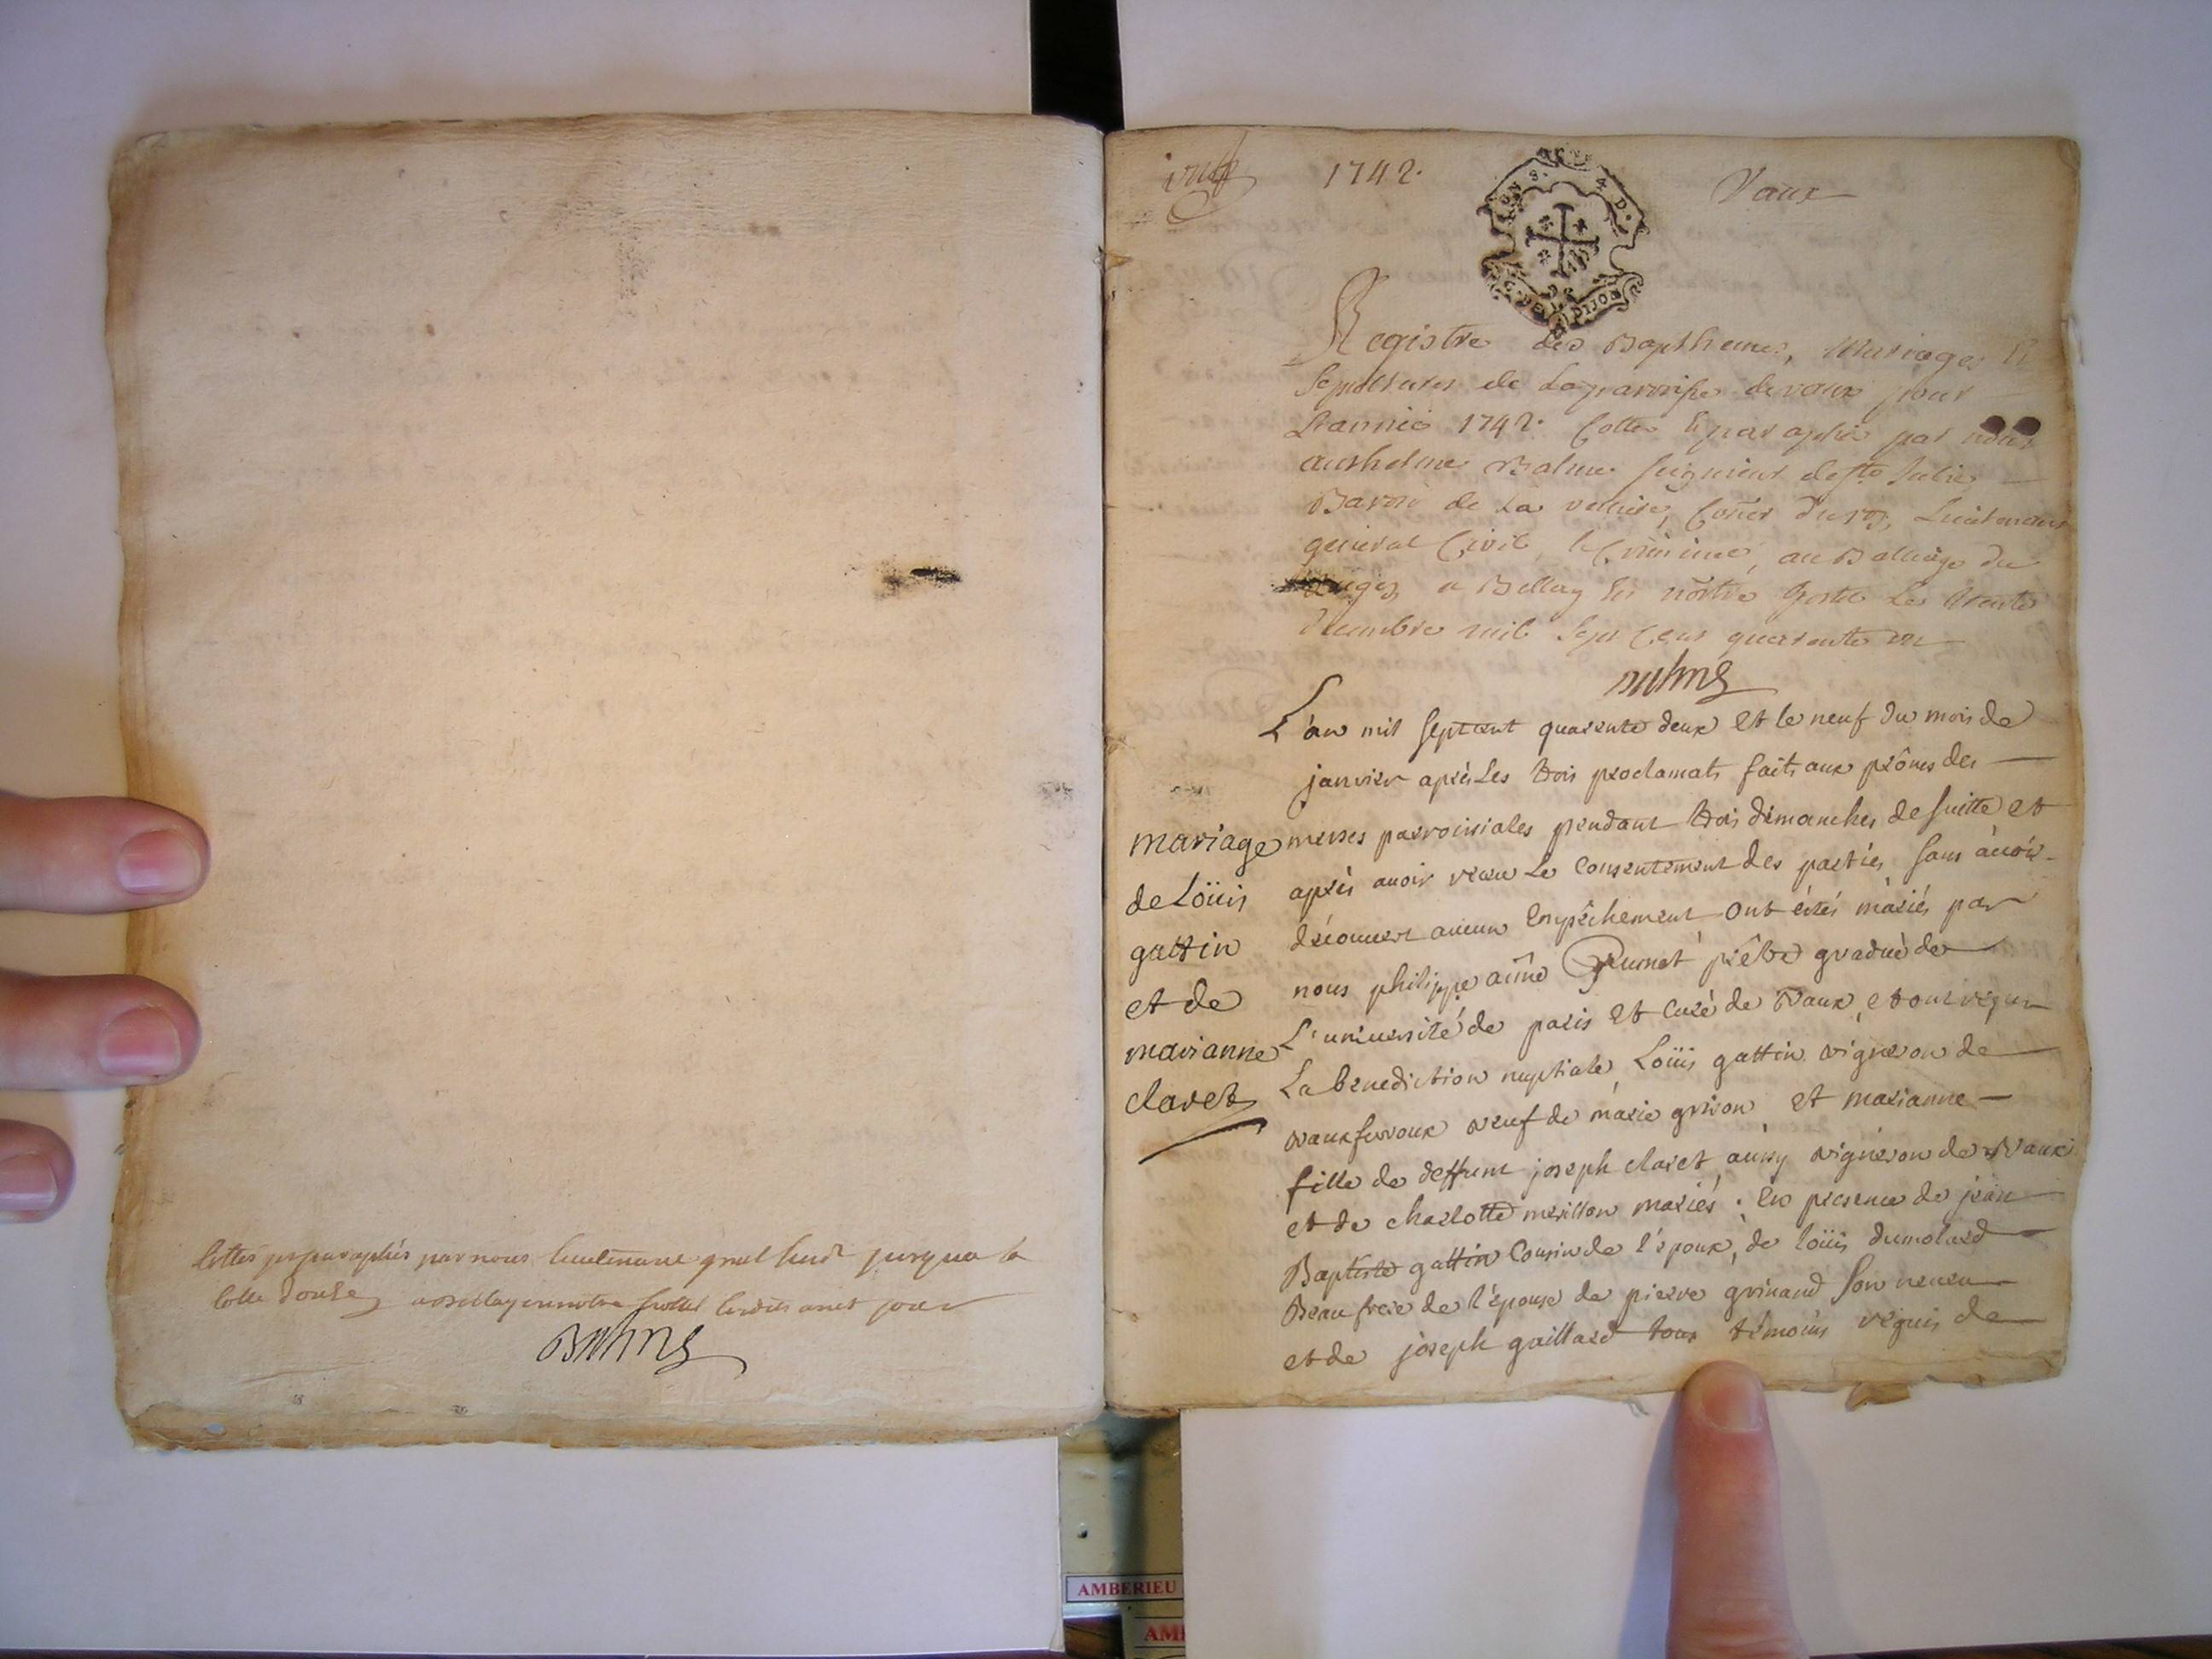 Cottes et paraphés par nous lieutenant gnal susd jusqua la
Cotte douse a Bellay en notre hostel lesdits an et jour
Balme
1742.
Vaux
Registre des Bapthemes, Mariages Et
Sepultures de La parroisse de vaux pour
L'année 1742. Cotté Et paraphé par nous
anthelme Balme seigneur de ste Julie,
Baron de La veluire, Coner du roy, Lieutenant
general Civil, Et Criminel, au Balliage du
Bugey, a Bellay En nôtre hostel Le trente
decembre mil Sept Cent quarente un
Balme
L'an mil Septcent quarente deux Et le neuf du mois de
janvier après Les trois proclamats faits aux prônes des
messes parroissiales pendant trois dimanches de suitte et
après auoir receu Le Consentement des parties, sans àuoir
découuert aucun Empêchement ont étés màriés par
nous philippe aimé Grumet prêtre gradué de
L'uniuersité de paris Et Curé de Vaux, et ont reçeu
La benediction nuptiale Loüis gattin vigneron de
vauxfevroux veuf de màrie grison et marianne
fille de deffunt joseph claret aussy vigneron de Vaux
et de charlotte merillon mariés : En presence de jean
Baptiste gattin Cousin de l'époux, de loüis dumolard
Beau frere de l'épouse de pierre grinand son neueu
et de joseph gaillard tous témoins réquis de
mariage
de Loüis
gattin
et de
marianne
claret
AMBERIEU
AM